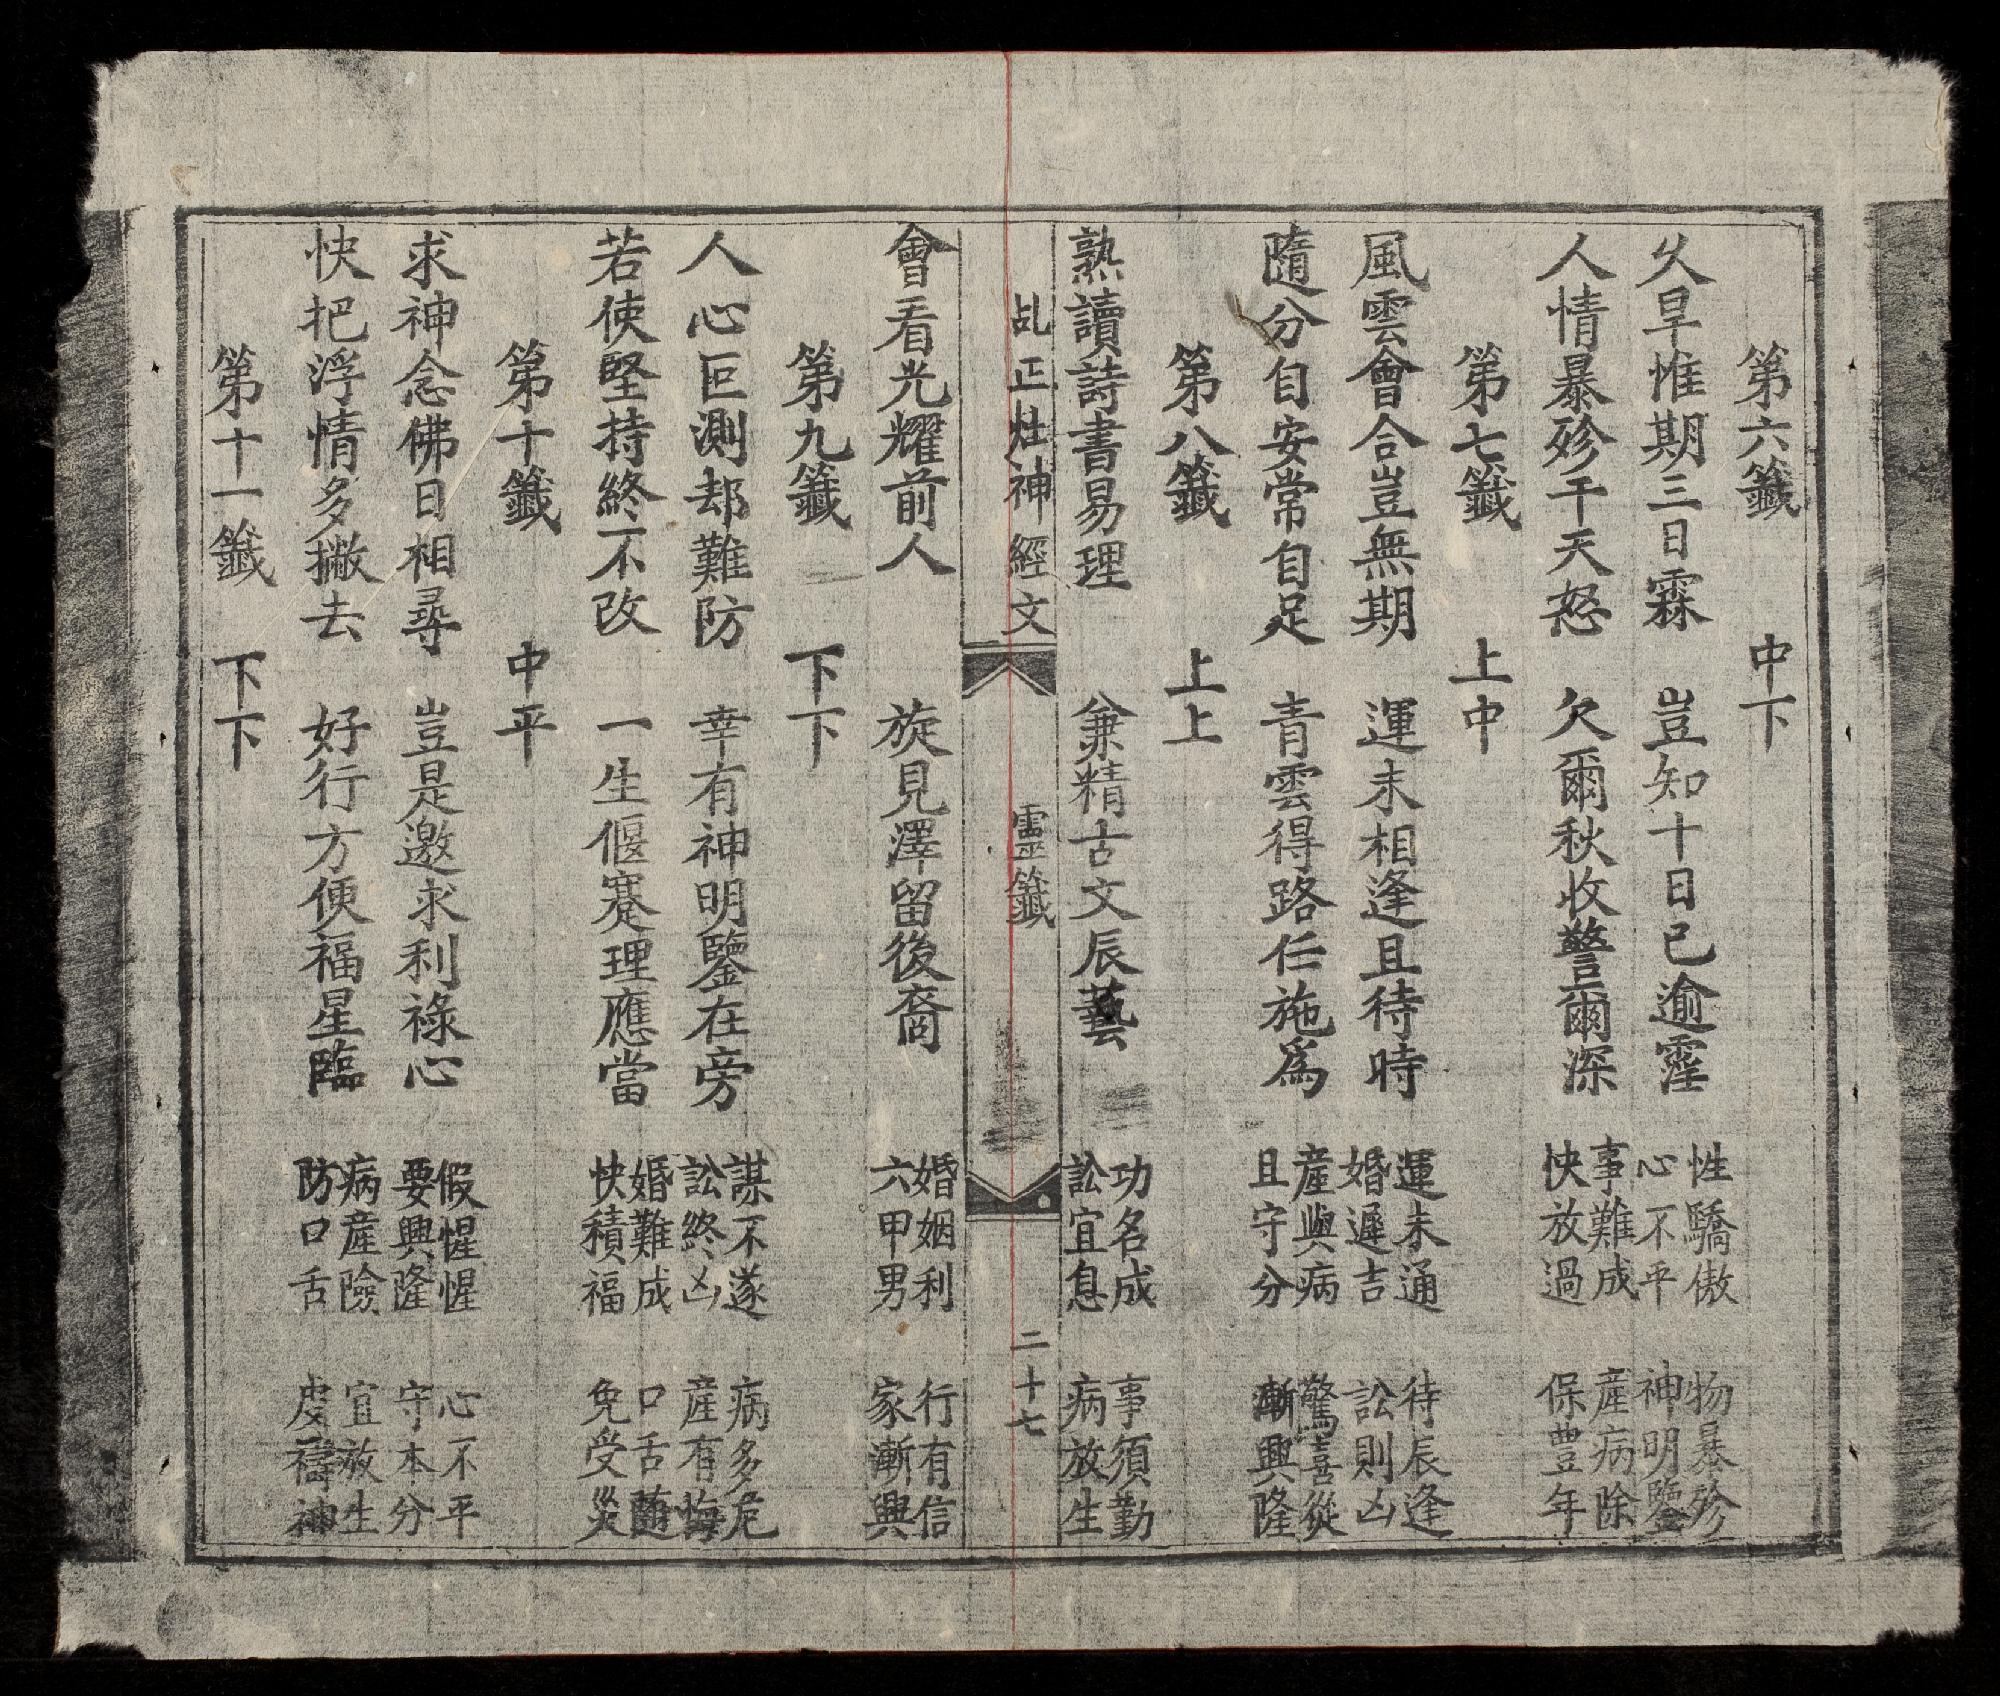 第六籤　中下
久旱惟期三日霖　豈知十日已逾霪　性驕傲　物暴殄
心不平　神明鑒
人情暴殄干天怒　欠爾秋收警爾深　事難成　產病除
快放過　保豊年
第七籤　上中
風雲會合豈無期　運未相逢且待時　運未通　待辰逢
婚遲吉　訟則凶
隨分自安常自足　青雲得路任施爲　產與病　驚喜從
且守分　漸興隆
第八籤　上上
熟讀詩書易理　兼精古文辰藝　功名成　事須勤
訟宜息　病放生
乩正灶神經文　靈籤　二十七
會看光耀前人　旋見澤留後裔　婚姻利　行有信
六甲男　家漸興
第九籤　下下
人心叵測却難防　幸有神明鑒在旁　謀不遂　病多危
訟終凶　產有悔
若使堅持終不改　一生偃蹇理應當　婚難成　口舌隨
快積福　免受災
第十籤　中平
求神念佛日相尋　豈是邀求利祿心　假惺惺　心不平
要興隆　守本分
快把浮情多撇去　好行方便福星臨　病產險　宜放生
防口舌　虔禱神
第十一籤　下下